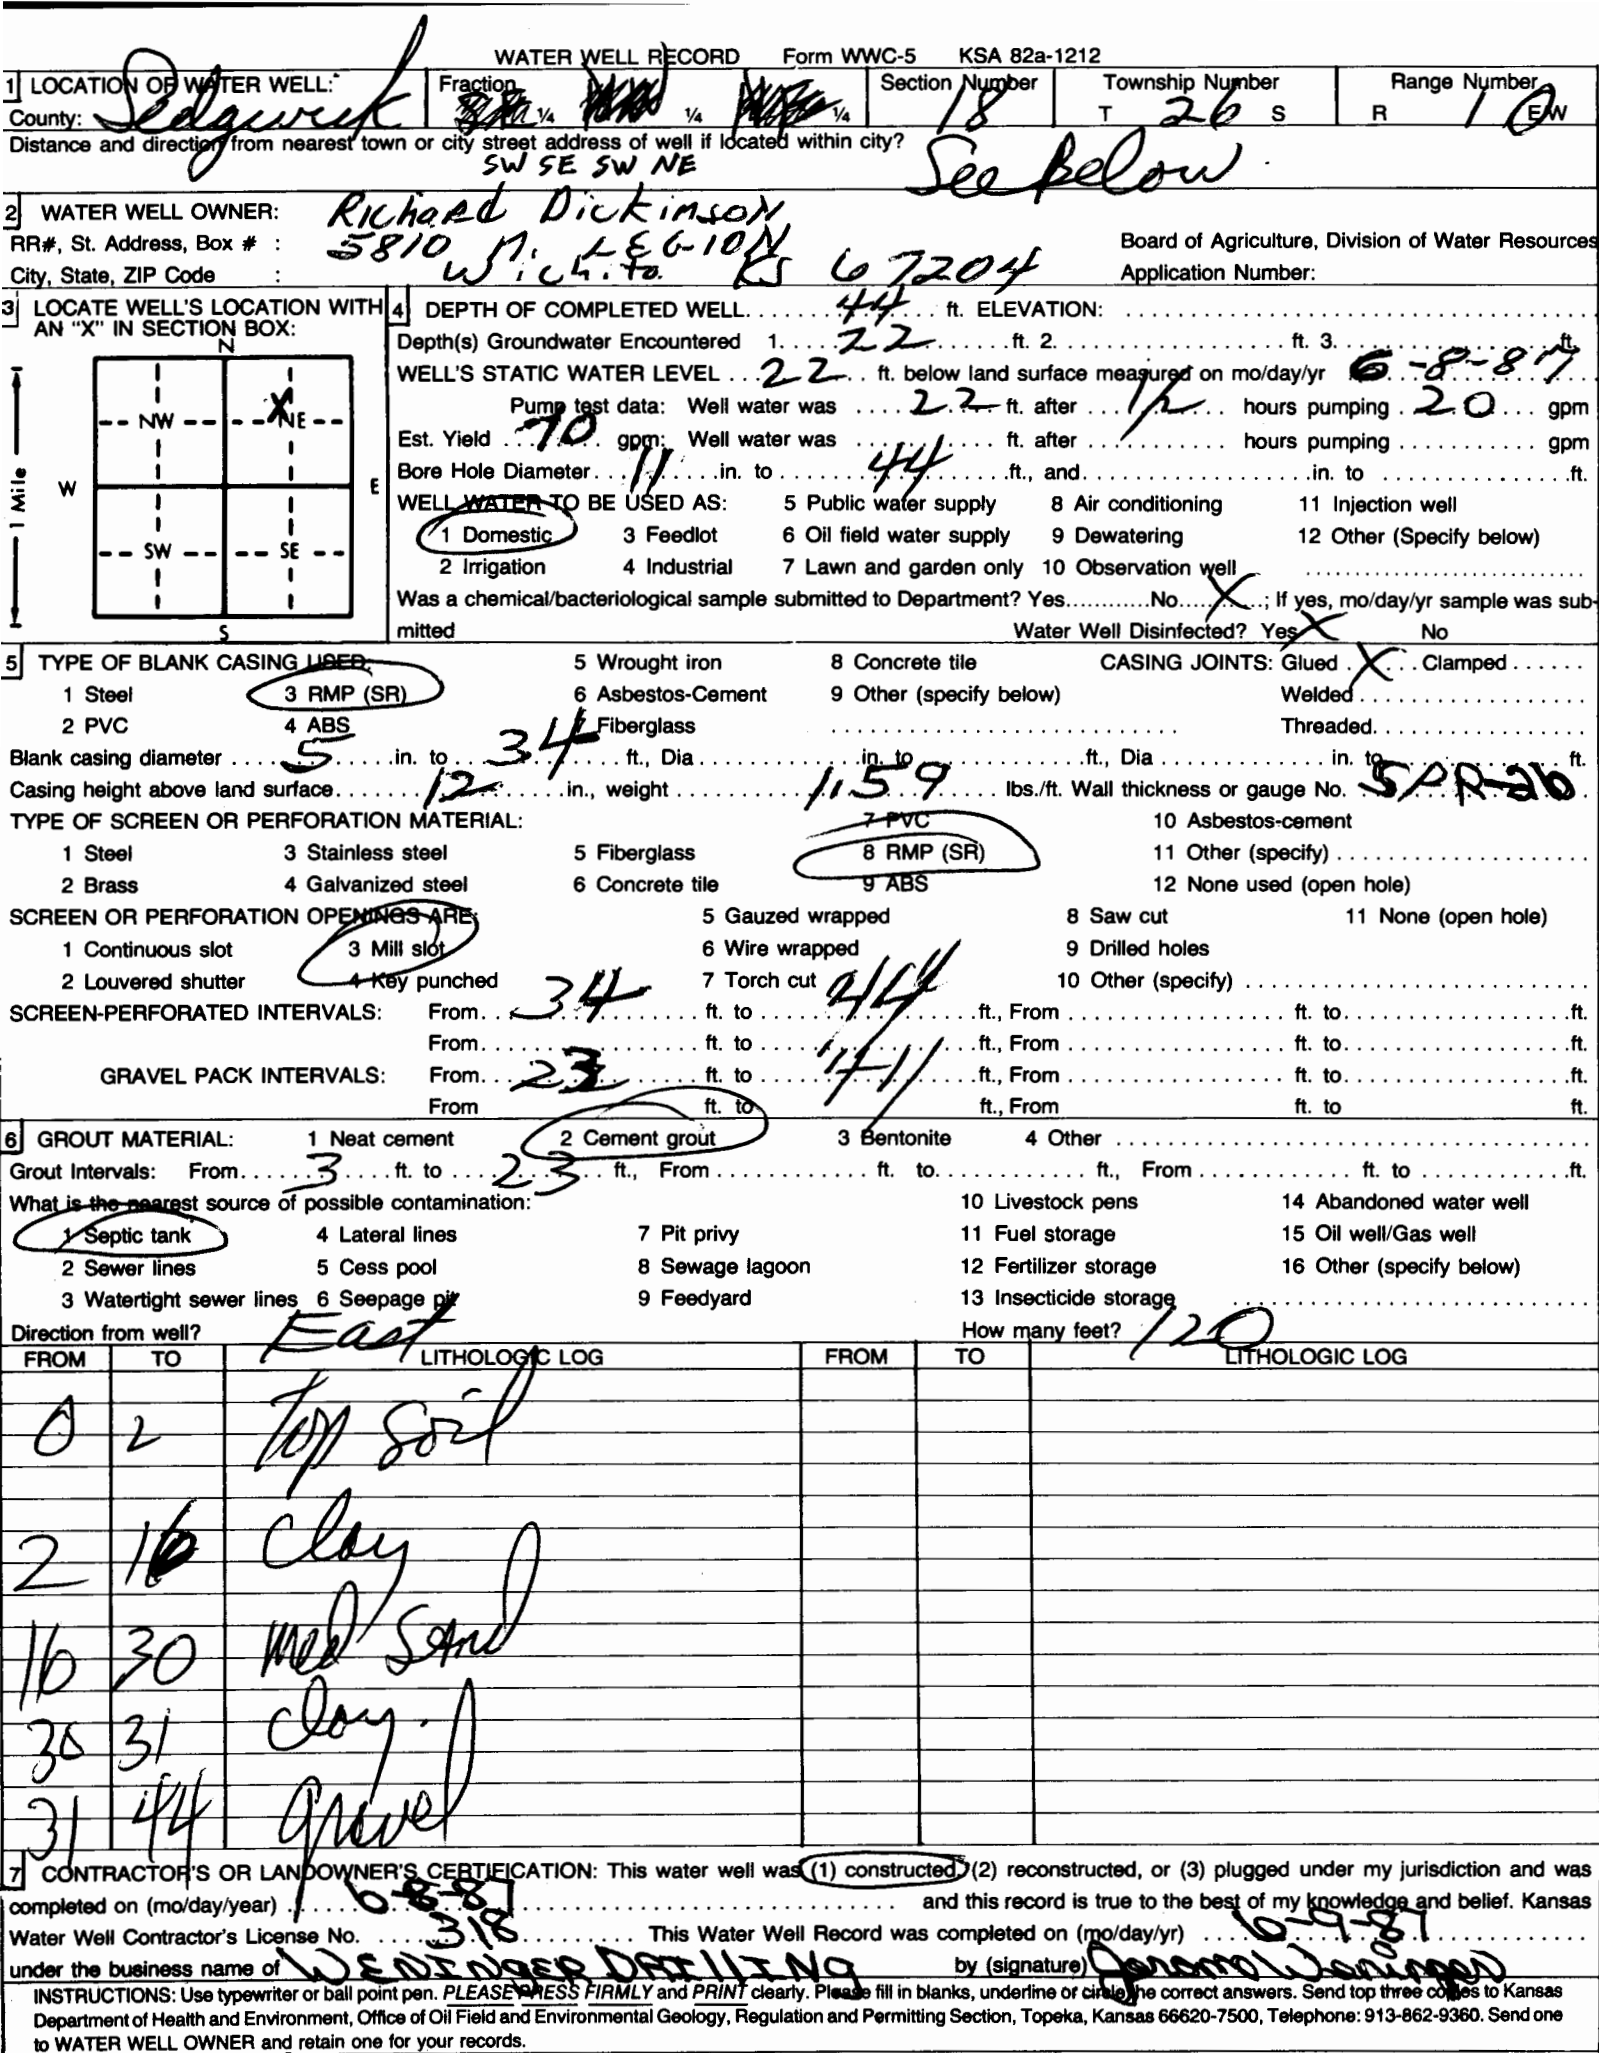 WATER WELL RECORD Form WWC-5 KSA 82a-1212
1 LOCATION OF WATER WELL: Fraction Section Number Township Number Range Number
County: Sedgwick ¼ ¼ ¼ 18 T 26 S R 1 E/W
Distance and direction from nearest town or city street address of well if located within city?
SW SE SW NE See Below
2 WATER WELL OWNER: Richard Dickinson
RR#, St. Address, Box # : 5810 N. LEGION Board of Agriculture, Division of Water Resources
City, State, ZIP Code : Wichita KS 67204 Application Number:
3 LOCATE WELL'S LOCATION WITH AN "X" IN SECTION BOX:
N
NW X NE
W E
SW SE
S
1 Mile
4 DEPTH OF COMPLETED WELL 44 ft. ELEVATION:
Depth(s) Groundwater Encountered 1. 22 ft. 2. ft. 3. ft.
WELL'S STATIC WATER LEVEL 22 ft. below land surface measured on mo/day/yr 6-8-87
Pump test data: Well water was 22 ft. after 1/2 hours pumping 20 gpm
Est. Yield 70 gpm: Well water was ft. after hours pumping gpm
Bore Hole Diameter 11 in. to 44 ft., and in. to ft.
WELL WATER TO BE USED AS: 5 Public water supply 8 Air conditioning 11 Injection well
1 Domestic 3 Feedlot 6 Oil field water supply 9 Dewatering 12 Other (Specify below)
2 Irrigation 4 Industrial 7 Lawn and garden only 10 Observation well
Was a chemical/bacteriological sample submitted to Department? Yes No X ; If yes, mo/day/yr sample was sub-
mitted Water Well Disinfected? Yes X No
5 TYPE OF BLANK CASING USED: 5 Wrought iron 8 Concrete tile CASING JOINTS: Glued X Clamped
1 Steel 3 RMP (SR) 6 Asbestos-Cement 9 Other (specify below) Welded
2 PVC 4 ABS 7 Fiberglass Threaded
Blank casing diameter 5 in. to 34 ft., Dia in. to ft., Dia in. to ft.
Casing height above land surface 12 in., weight 1.59 lbs./ft. Wall thickness or gauge No. SPR-26
TYPE OF SCREEN OR PERFORATION MATERIAL: 7 PVC 10 Asbestos-cement
1 Steel 3 Stainless steel 5 Fiberglass 8 RMP (SR) 11 Other (specify)
2 Brass 4 Galvanized steel 6 Concrete tile 9 ABS 12 None used (open hole)
SCREEN OR PERFORATION OPENINGS ARE: 5 Gauzed wrapped 8 Saw cut 11 None (open hole)
1 Continuous slot 3 Mill slot 6 Wire wrapped 9 Drilled holes
2 Louvered shutter 4 Key punched 7 Torch cut 10 Other (specify)
SCREEN-PERFORATED INTERVALS: From 34 ft. to 44 ft., From ft. to ft.
From ft. to ft., From ft. to ft.
GRAVEL PACK INTERVALS: From 23 ft. to 44 ft., From ft. to ft.
From ft. to ft., From ft. to ft.
6 GROUT MATERIAL: 1 Neat cement 2 Cement grout 3 Bentonite 4 Other
Grout Intervals: From 3 ft. to 23 ft., From ft. to ft., From ft. to ft.
What is the nearest source of possible contamination: 10 Livestock pens 14 Abandoned water well
1 Septic tank 4 Lateral lines 7 Pit privy 11 Fuel storage 15 Oil well/Gas well
2 Sewer lines 5 Cess pool 8 Sewage lagoon 12 Fertilizer storage 16 Other (specify below)
3 Watertight sewer lines 6 Seepage pit 9 Feedyard 13 Insecticide storage
Direction from well? East How many feet? 120
FROM TO LITHOLOGIC LOG FROM TO LITHOLOGIC LOG
0 2 Top Soil
2 16 Clay
16 30 Med Sand
30 31 Clay.
31 44 gravel
7 CONTRACTOR'S OR LANDOWNER'S CERTIFICATION: This water well was (1) constructed, (2) reconstructed, or (3) plugged under my jurisdiction and was
completed on (mo/day/year) 6-8-87 and this record is true to the best of my knowledge and belief. Kansas
Water Well Contractor's License No. 318 This Water Well Record was completed on (mo/day/yr) 6-9-87
under the business name of WENINGER DRILLING by (signature) Jerome Weninger
INSTRUCTIONS: Use typewriter or ball point pen. PLEASE PRESS FIRMLY and PRINT clearly. Please fill in blanks, underline or circle the correct answers. Send top three copies to Kansas
Department of Health and Environment, Office of Oil Field and Environmental Geology, Regulation and Permitting Section, Topeka, Kansas 66620-7500, Telephone: 913-862-9360. Send one
to WATER WELL OWNER and retain one for your records.